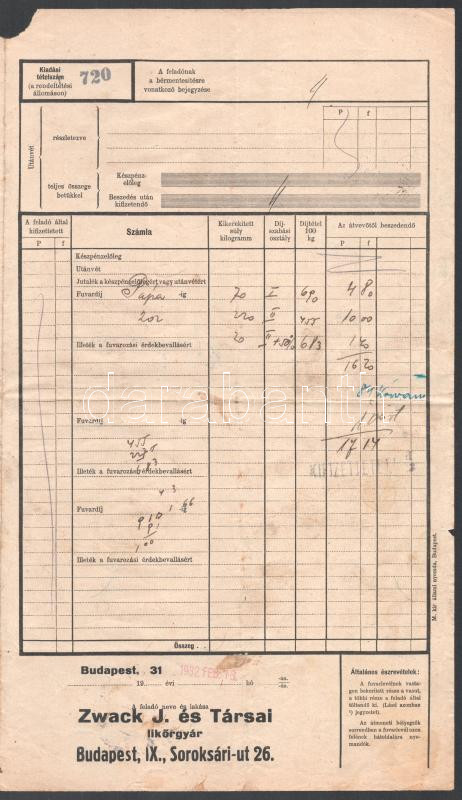 Kiadási
tételszám
(a rendeltetési
állomáson)
720
A feladónak
a bérmentesítésre
vonatkozó bejegyzése
P f
Utánvét
részletezve
teljes összege
betűkkel
Készpénz-
előleg
Beszedés után
kifizetendő
A feladó által
kifizettetett
P f
Számla
Kikerekített
súly
kilogramm
Díj-
szabási
osztály
Díjtétel
100
kg
Az átvevőtől beszedendő
P f
Készpénzelőleg
Utánvét
Jutalék a készpénzelőlegért vagy utánvétért
Fuvardíj Pápa -ig 70 I 690 4 80
220 II 455 10 00
Illeték a fuvarozási érdekbevallásért 20 II +50% 613 1 20
16 20
Fuvardíj -ig
17 17
455
613
Illeték a fuvarozási érdekbevallásért
Fuvardíj
Illeték a fuvarozási érdekbevallásért
Összeg
M. kir. állami nyomda, Budapest.
darabanth
Budapest, 31
1932 FEB.
19 évi hó -án.
-én.
A feladó neve és lakása
Zwack J. és Társai
likőrgyár
Budapest, IX., Soroksári-ut 26.
Általános észrevételek:
A fuvarlevélnek vasta-
gon bekerített része a vasut,
a többi része a feladó által
töltendő ki. (Lásd azonban
¹) jegyzetet).
Az átmeneti bélyegzők
sorrendben a fuvarlevél azon
felének hátoldalára nyo-
mandók.